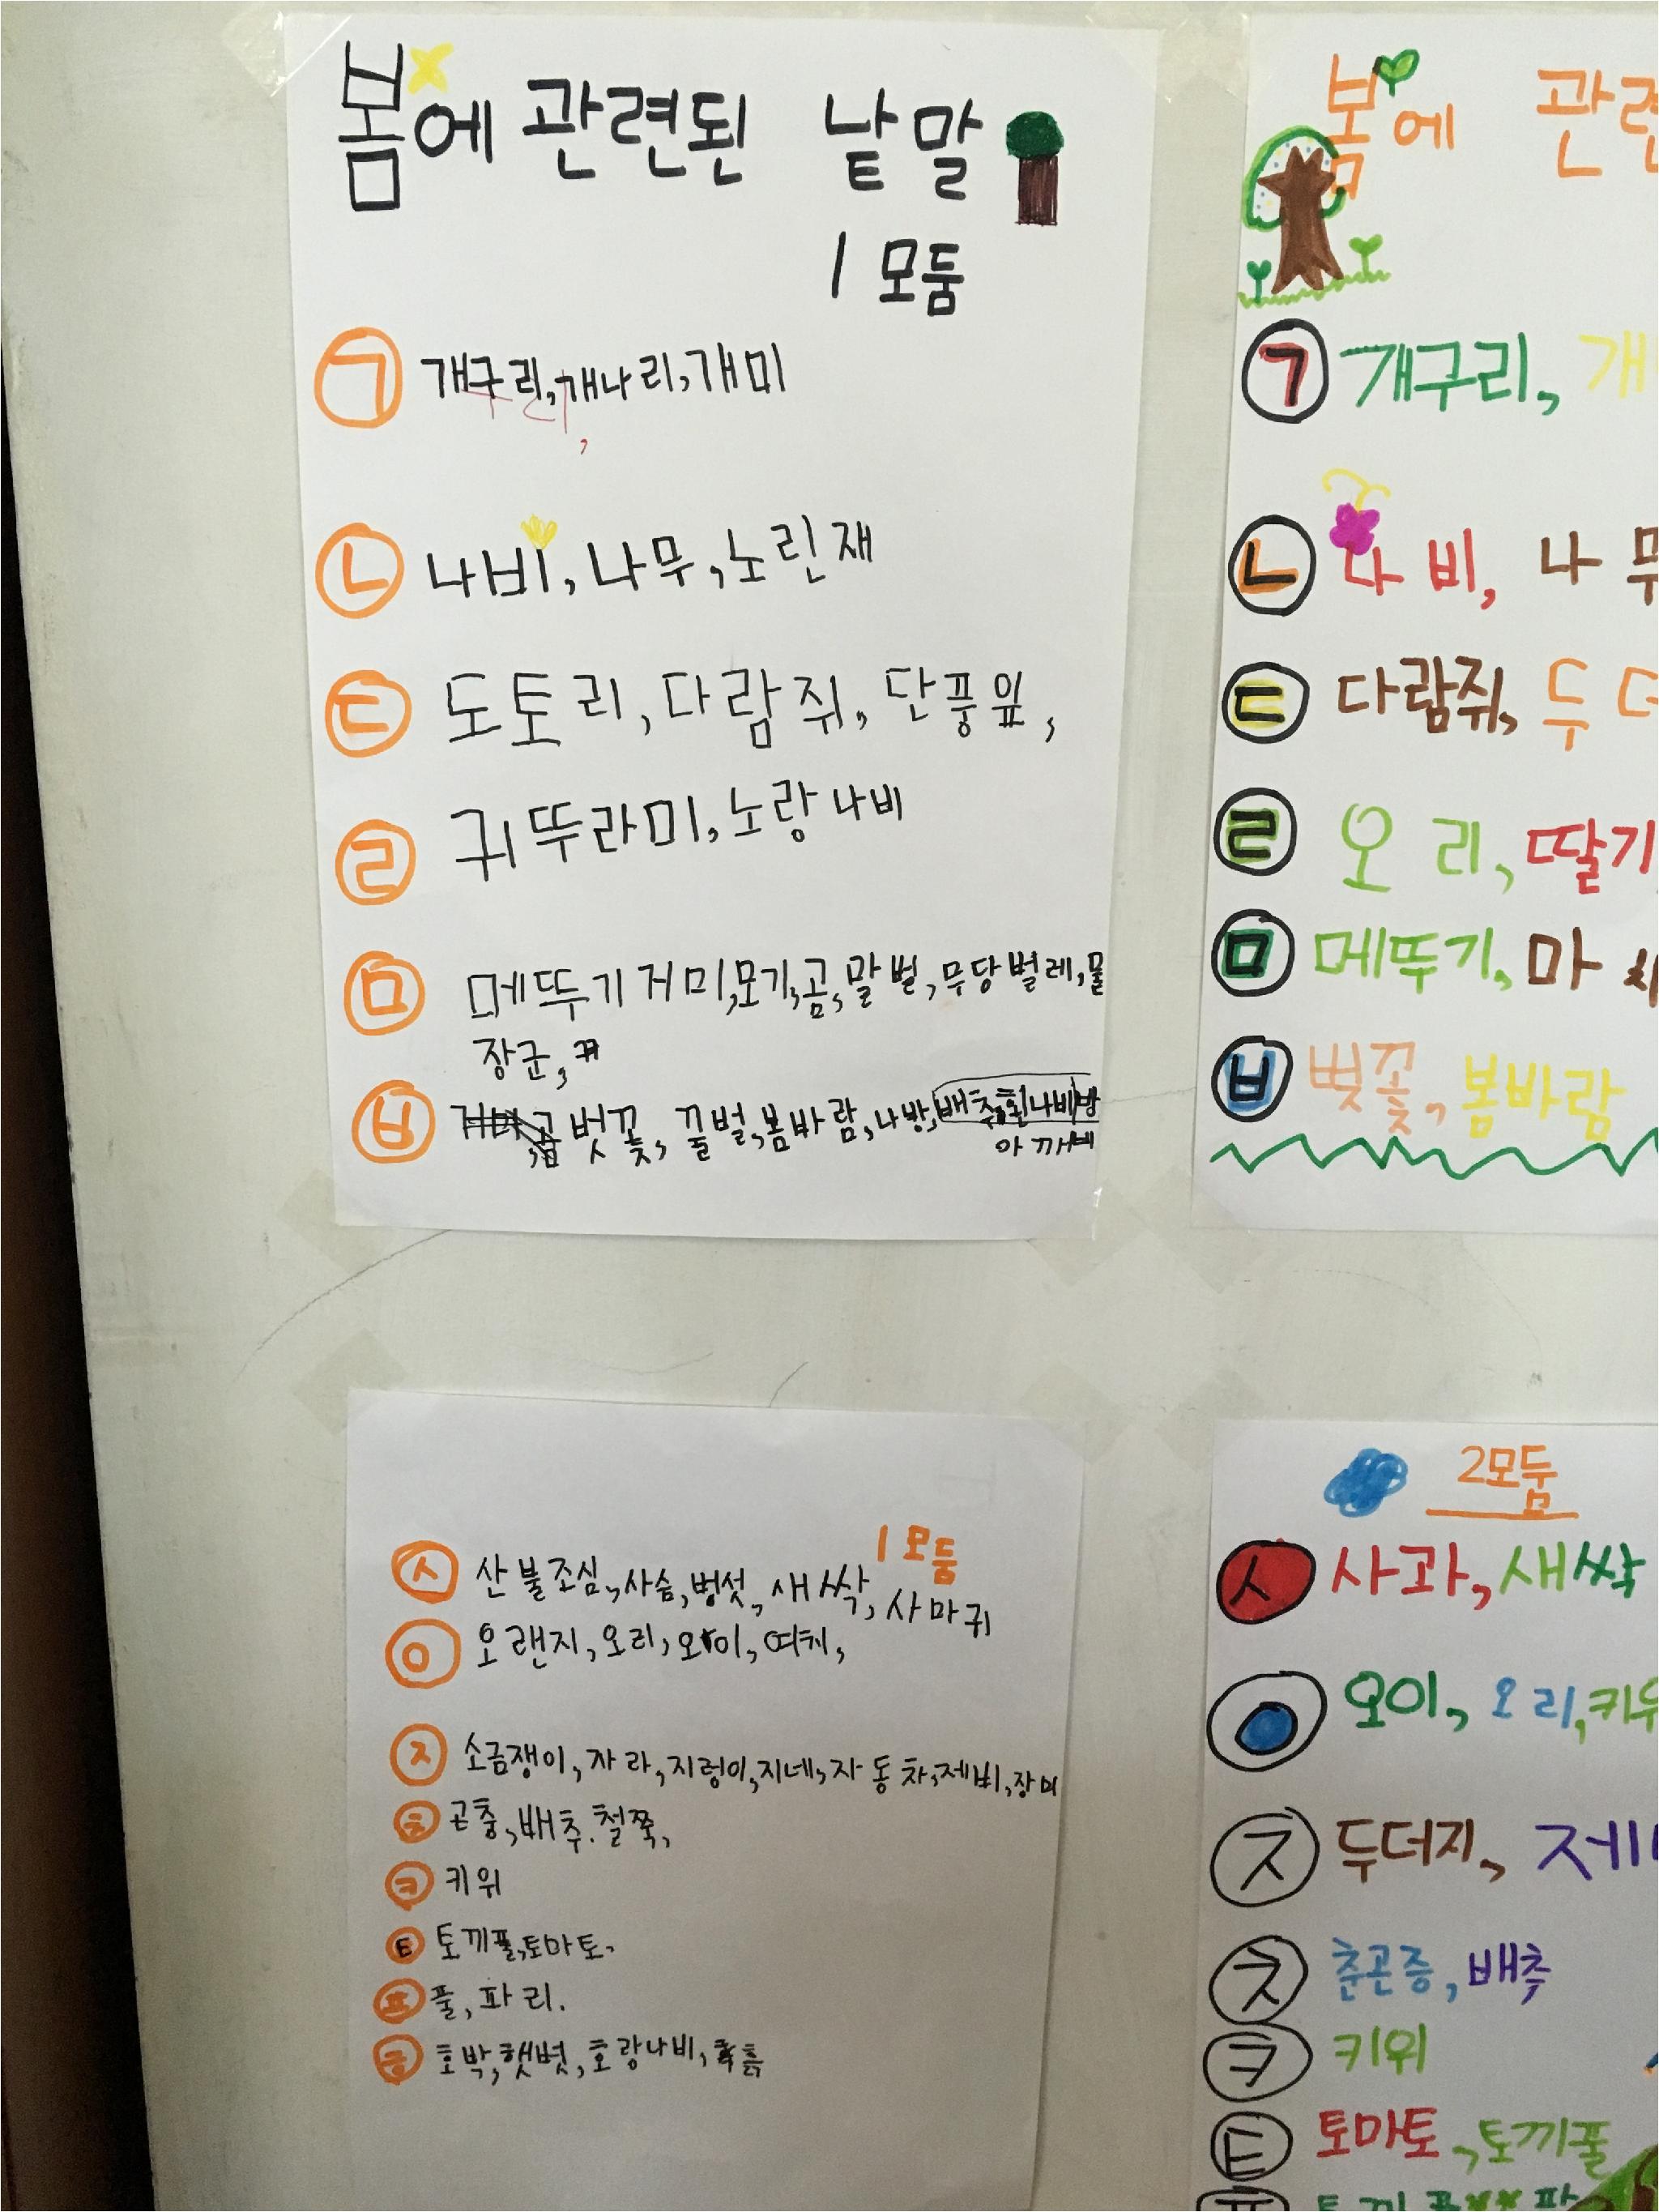 봄에 관련된 낱말
1 모둠
ㄱ 개구리, 개나리, 개미
ㄴ 나비, 나무, 노린재
ㄷ 도토리, 다람쥐, 단풍잎,
ㄹ 귀뚜라미, 노랑나비
ㅁ 메뚜기 거미, 모기, 곰, 말벌, 무당벌레, 물
장군,
ㅂ 벗꽃, 꿀벌, 봄바람, 나방, 배추흰나비
봄에
ㄱ 개구리, 개
ㄴ 나비, 나무
ㄷ 다람쥐, 두더
ㄹ 오리, 딸기
ㅁ 메뚜기, 마
ㅂ 벚꽃, 봄바람
1 모둠
ㅅ 산불조심, 사슴, 벙섯, 새싹, 사마귀
ㅇ 오랜지, 오리, 오이,
ㅈ 소금쟁이, 자라, 지렁이, 지네, 자동차, 제비, 장미
ㅊ 곤충, 배추. 철쭉,
ㅋ 키위
ㅌ 토끼풀, 토마토,
ㅍ 풀, 파리.
ㅎ 호박, 햇볏, 호랑나비, 흙
2모둠
ㅅ 사과, 새싹
ㅇ 오이, 오리, 키위
ㅈ 두더지, 제
ㅊ 춘곤증, 배추
ㅋ 키위
ㅌ 토마토, 토끼풀